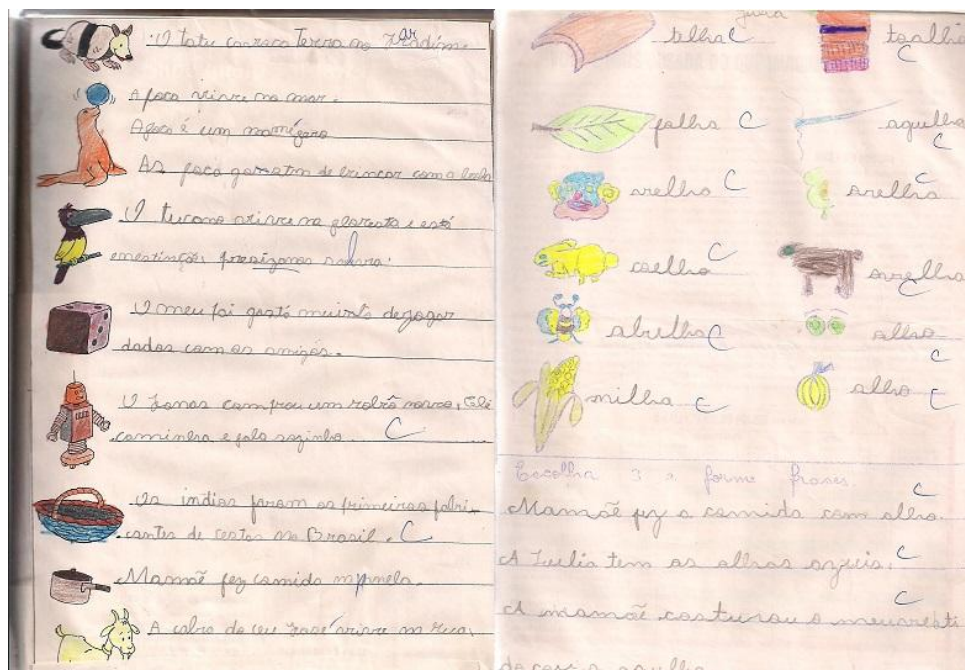 O tatu cavoca terra no Jardim.
A foca vive no mar.
A foca é um mamífero
As foca gostam de brincar com a bola
O tucano vive na floresta e está
emestinção, presizamos salvra.
O meu pai gosta muinto dejogar
dados com os amigos.
O Jonas comprou um robô novo, Ele
caminha e fala sozinho. C
Os índios foram os primeiros fabri-
cantes de cestos no Brasil. C
Mamãe fez comida na panela.
A cabra do seu José vive na rua.
telha C toalha C
folha C agulha C
velho C orelha C
coelho C ovelha C
abelha C olho C
milho C alho C
Escolha 3 e forme frases.
Mamãe fez a comida com alho. C
A Julia tem os olhos azuis. C
A mamãe costurou o meu vesti C
do com a agulha